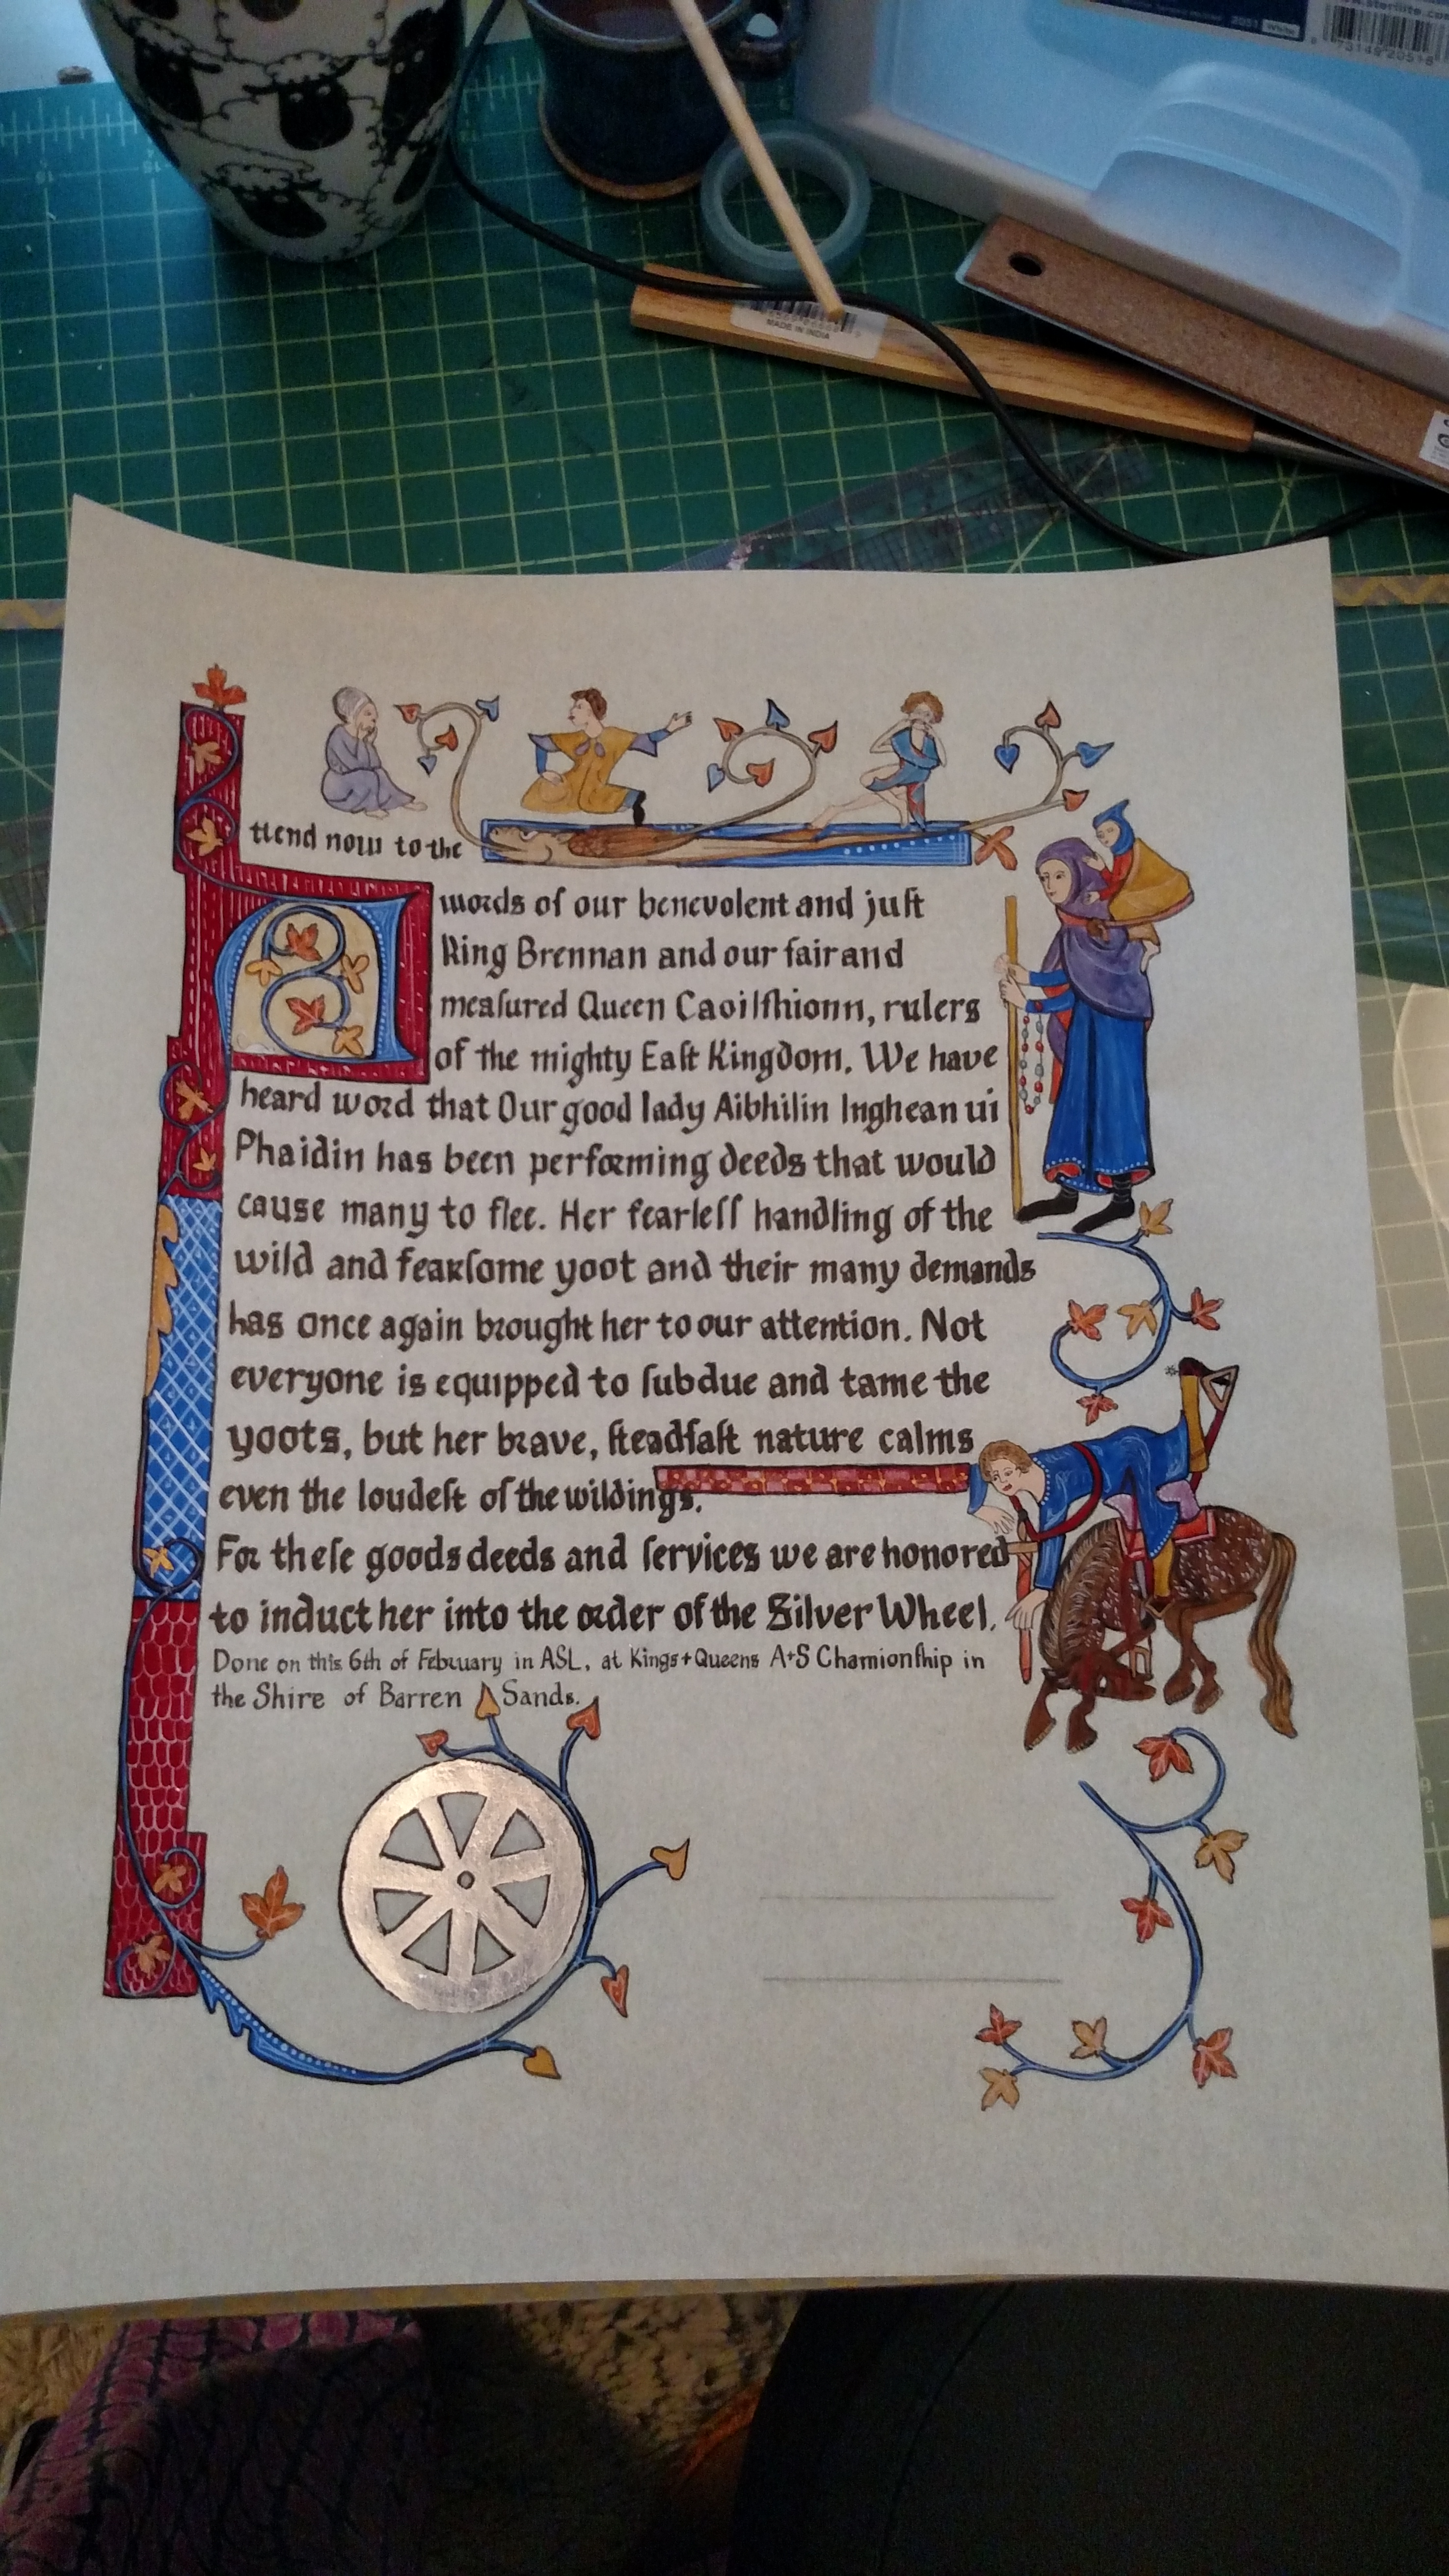 2051 White
www.sterilite.co
73149 20518
MADE IN INDIA
Attend now to the
words of our benevolent and juſt
King Brennan and our fair and
meaſured Queen Caoilfhionn, rulers
of the mighty Eaſt Kingdom. We have
heard word that Our good lady Aibhilin Inghean ui
Phaidin has been performing deeds that would
cause many to flee. Her fearleſſ handling of the
wild and fearſome yoot and their many demands
has once again brought her to our attention. Not
everyone is equipped to ſubdue and tame the
yoots, but her brave, ſteadfaſt nature calms
even the loudeſt of the wildings.
For theſe goods deeds and ſervices we are honored
to induct her into the order of the Silver Wheel.
Done on this 6th of February in ASL, at Kings+Queens A+S Chamionſhip in
the Shire of Barren Sands.